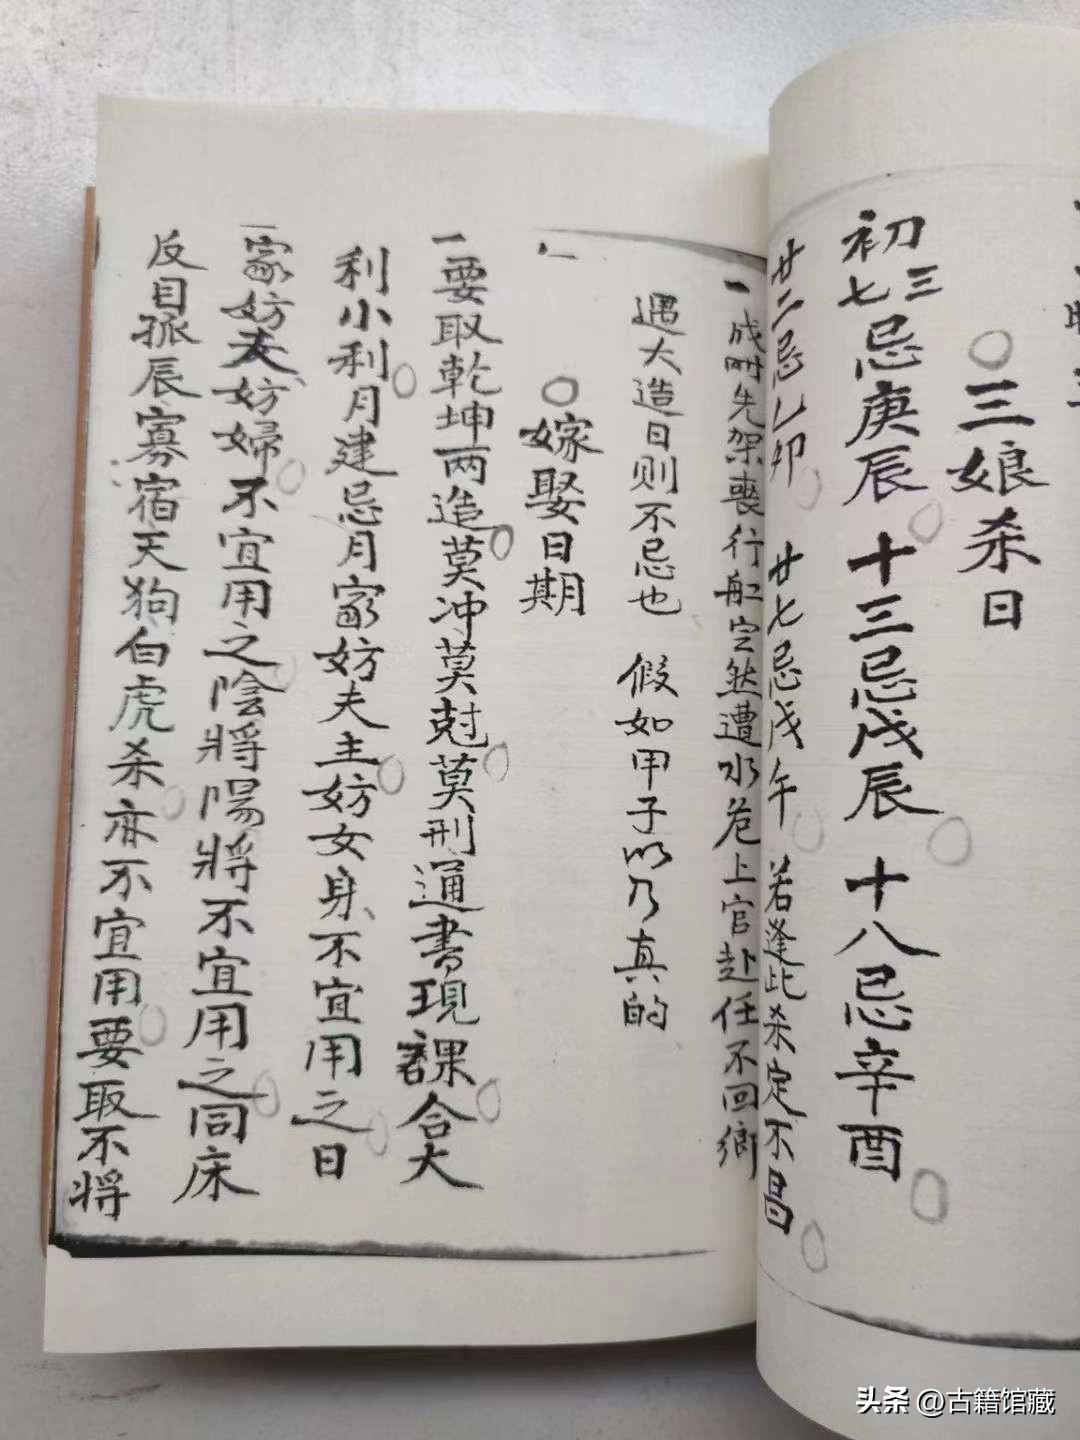 ○三娘杀日
初三
初七忌庚辰 十三忌戊辰 十八忌辛酉
廿二忌乙卯 廿七忌戊午 若逢此杀定不昌
一成附先架喪行舡定然遭水危上官赴任不回鄉
遇大造日则不忌也 假如甲子以乃真的
○嫁娶日期
一要取乾坤两造莫冲莫尅莫刑通書現課合大
利小利月建忌月家妨夫主妨女身不宜用之日
一家妨夫妨婦不宜用之陰將陽將不宜用之同床
反目孤辰寡宿天狗白虎杀亦不宜用要取不将
头条 @古籍馆藏